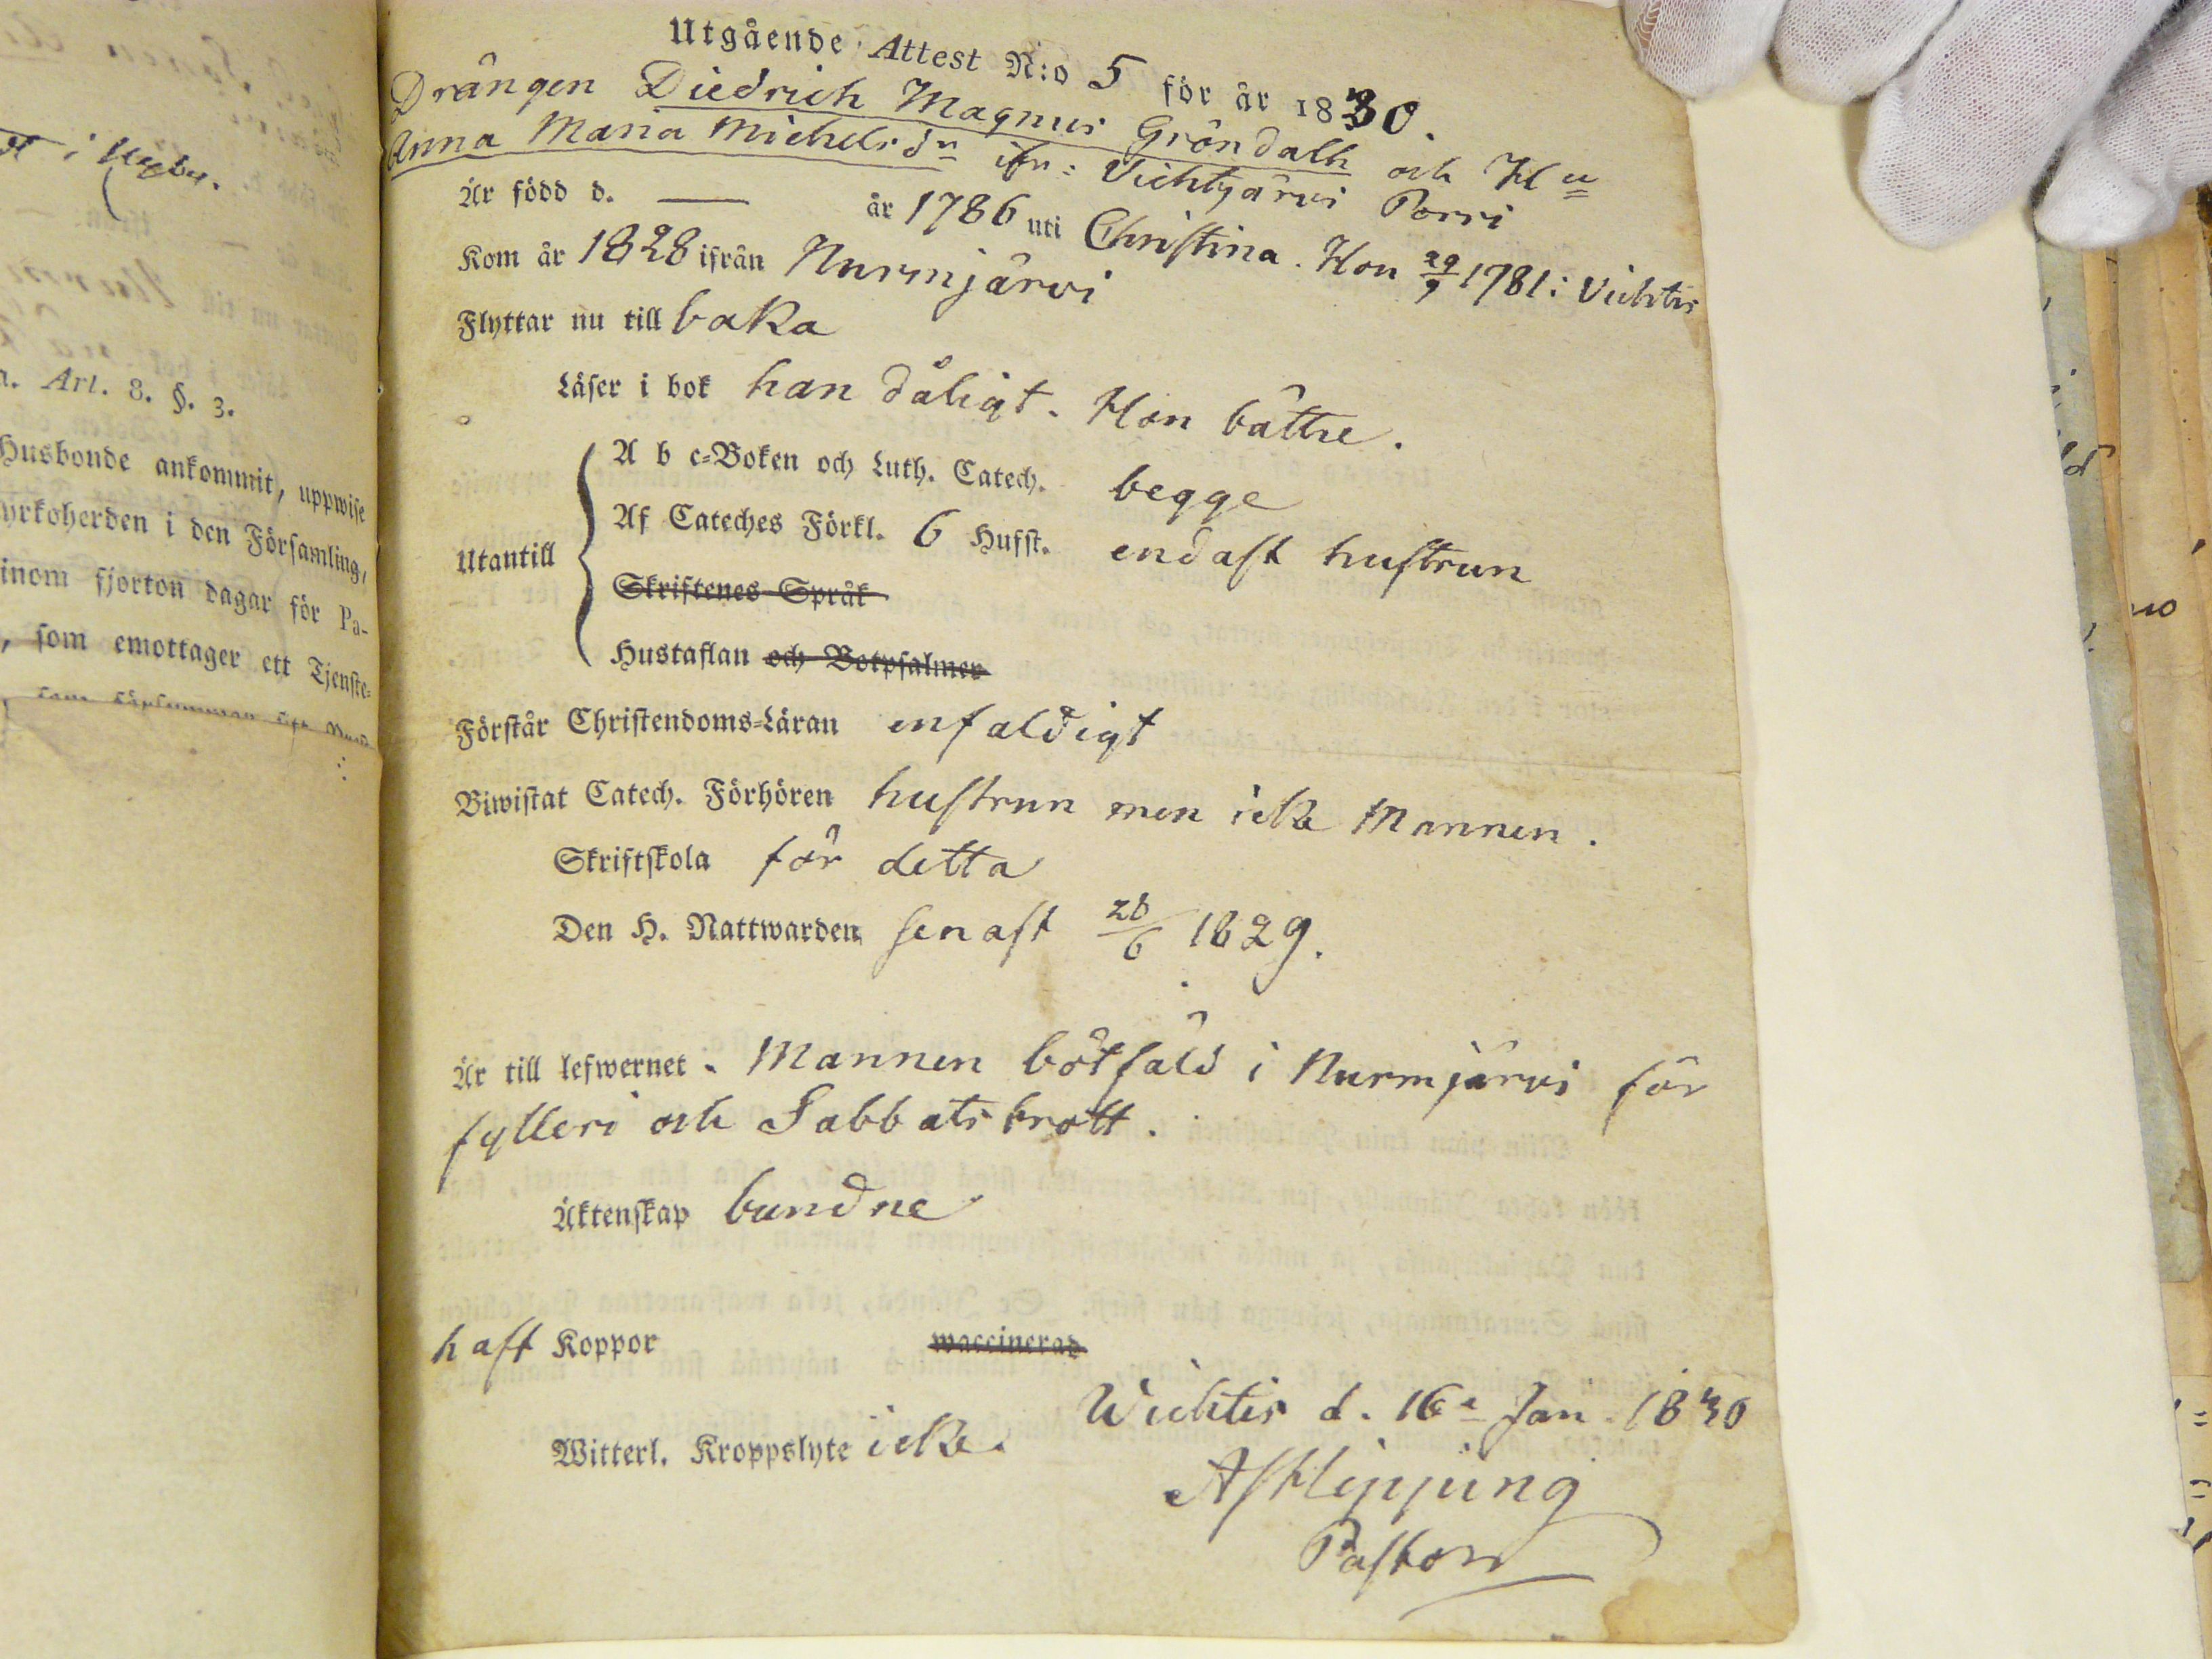 Utgående Attest N:o 5 för år 1830.
Drängen Diedrich Magnus Gröndalh och Hu
Anna Maria Michelsdr ifr: Vichtjärvi Porri
Är född d. — år 1786 uti Christina. Hon 29/9 1781 i Vichtis
Kom år 1828 ifrån Nurmjärvi
Flyttar nu till baka
Läser i bok han dåligt. Hon bättre.
A b c-Boken och Luth. Catech. begge
Af Cateches Förkl. 6 Hufst. endast hustrun
Utantill
Skriftenes Språk
Hustaflan och Botpsalmer
Förstår Christendoms-Läran enfaldigt
Biwistat Catech. Förhören hustrun men icke Mannen.
Skriftskola för detta
Den H. Nattwarden senast 28/6 1829.
Är till lefwernet. Mannen bötfäld i Nurmjärvi för
fylleri och Sabbatsbrott.
Äktenskap bundne
haft Koppor waccinerad
Wichtis d. 16e Jan. 1830
Witterl. Kroppslyte icke.
AFHipping
Pastor
i
n. Art. 8. §. 3.
Husbonde ankommit, uppwise
yrkoherden i den Församling,
inom fjorton dagar för Pa-
, som emottager ett Tjenste-